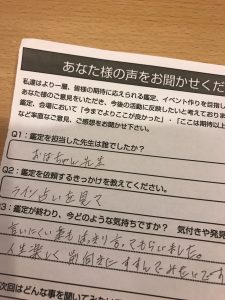 あなた様の声をお聞かせくだ
私達はより一層、皆様の期待に応えられる鑑定、イベント作りを目指し
あなた様のご意見をいただき、今後の活動に反映したいと考えておりま
鑑定、会場において「今までよりここが良かった」・「ここは期待以上
など率直なご意見、ご感想をお聞かせ下さい。
Q1:鑑定を担当した先生は誰でしたか?
おはちゃん先生
Q2:鑑定を依頼するきっかけを教えてください。
ライン占いを見て
3:鑑定が終わり、今どのような気持ちですか? 気付きや発見
言いにくい事もはっきり言ってもらいました。
人生楽しく前向きにすすんでみたいです
次回はどんな事を聞いてみたい